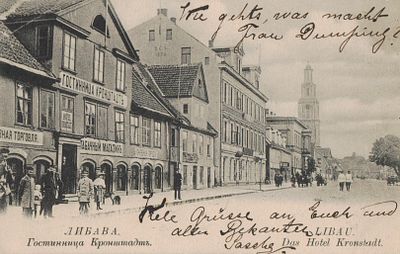 Wie gehts, was macht
Frau Dumping?
ГОСТИННИЦА КРОНШТАТЪ
ТАБАЧНЫЙ МАГАЗИНЪ
НАЯ ТОРГОВЛЯ
Viele Grüsse an Euch und
allen Bekannten
Sascha
ЛИБАВА.
Гостинница Кронштадтъ.
LIBAU.
Das Hotel Kronstadt.